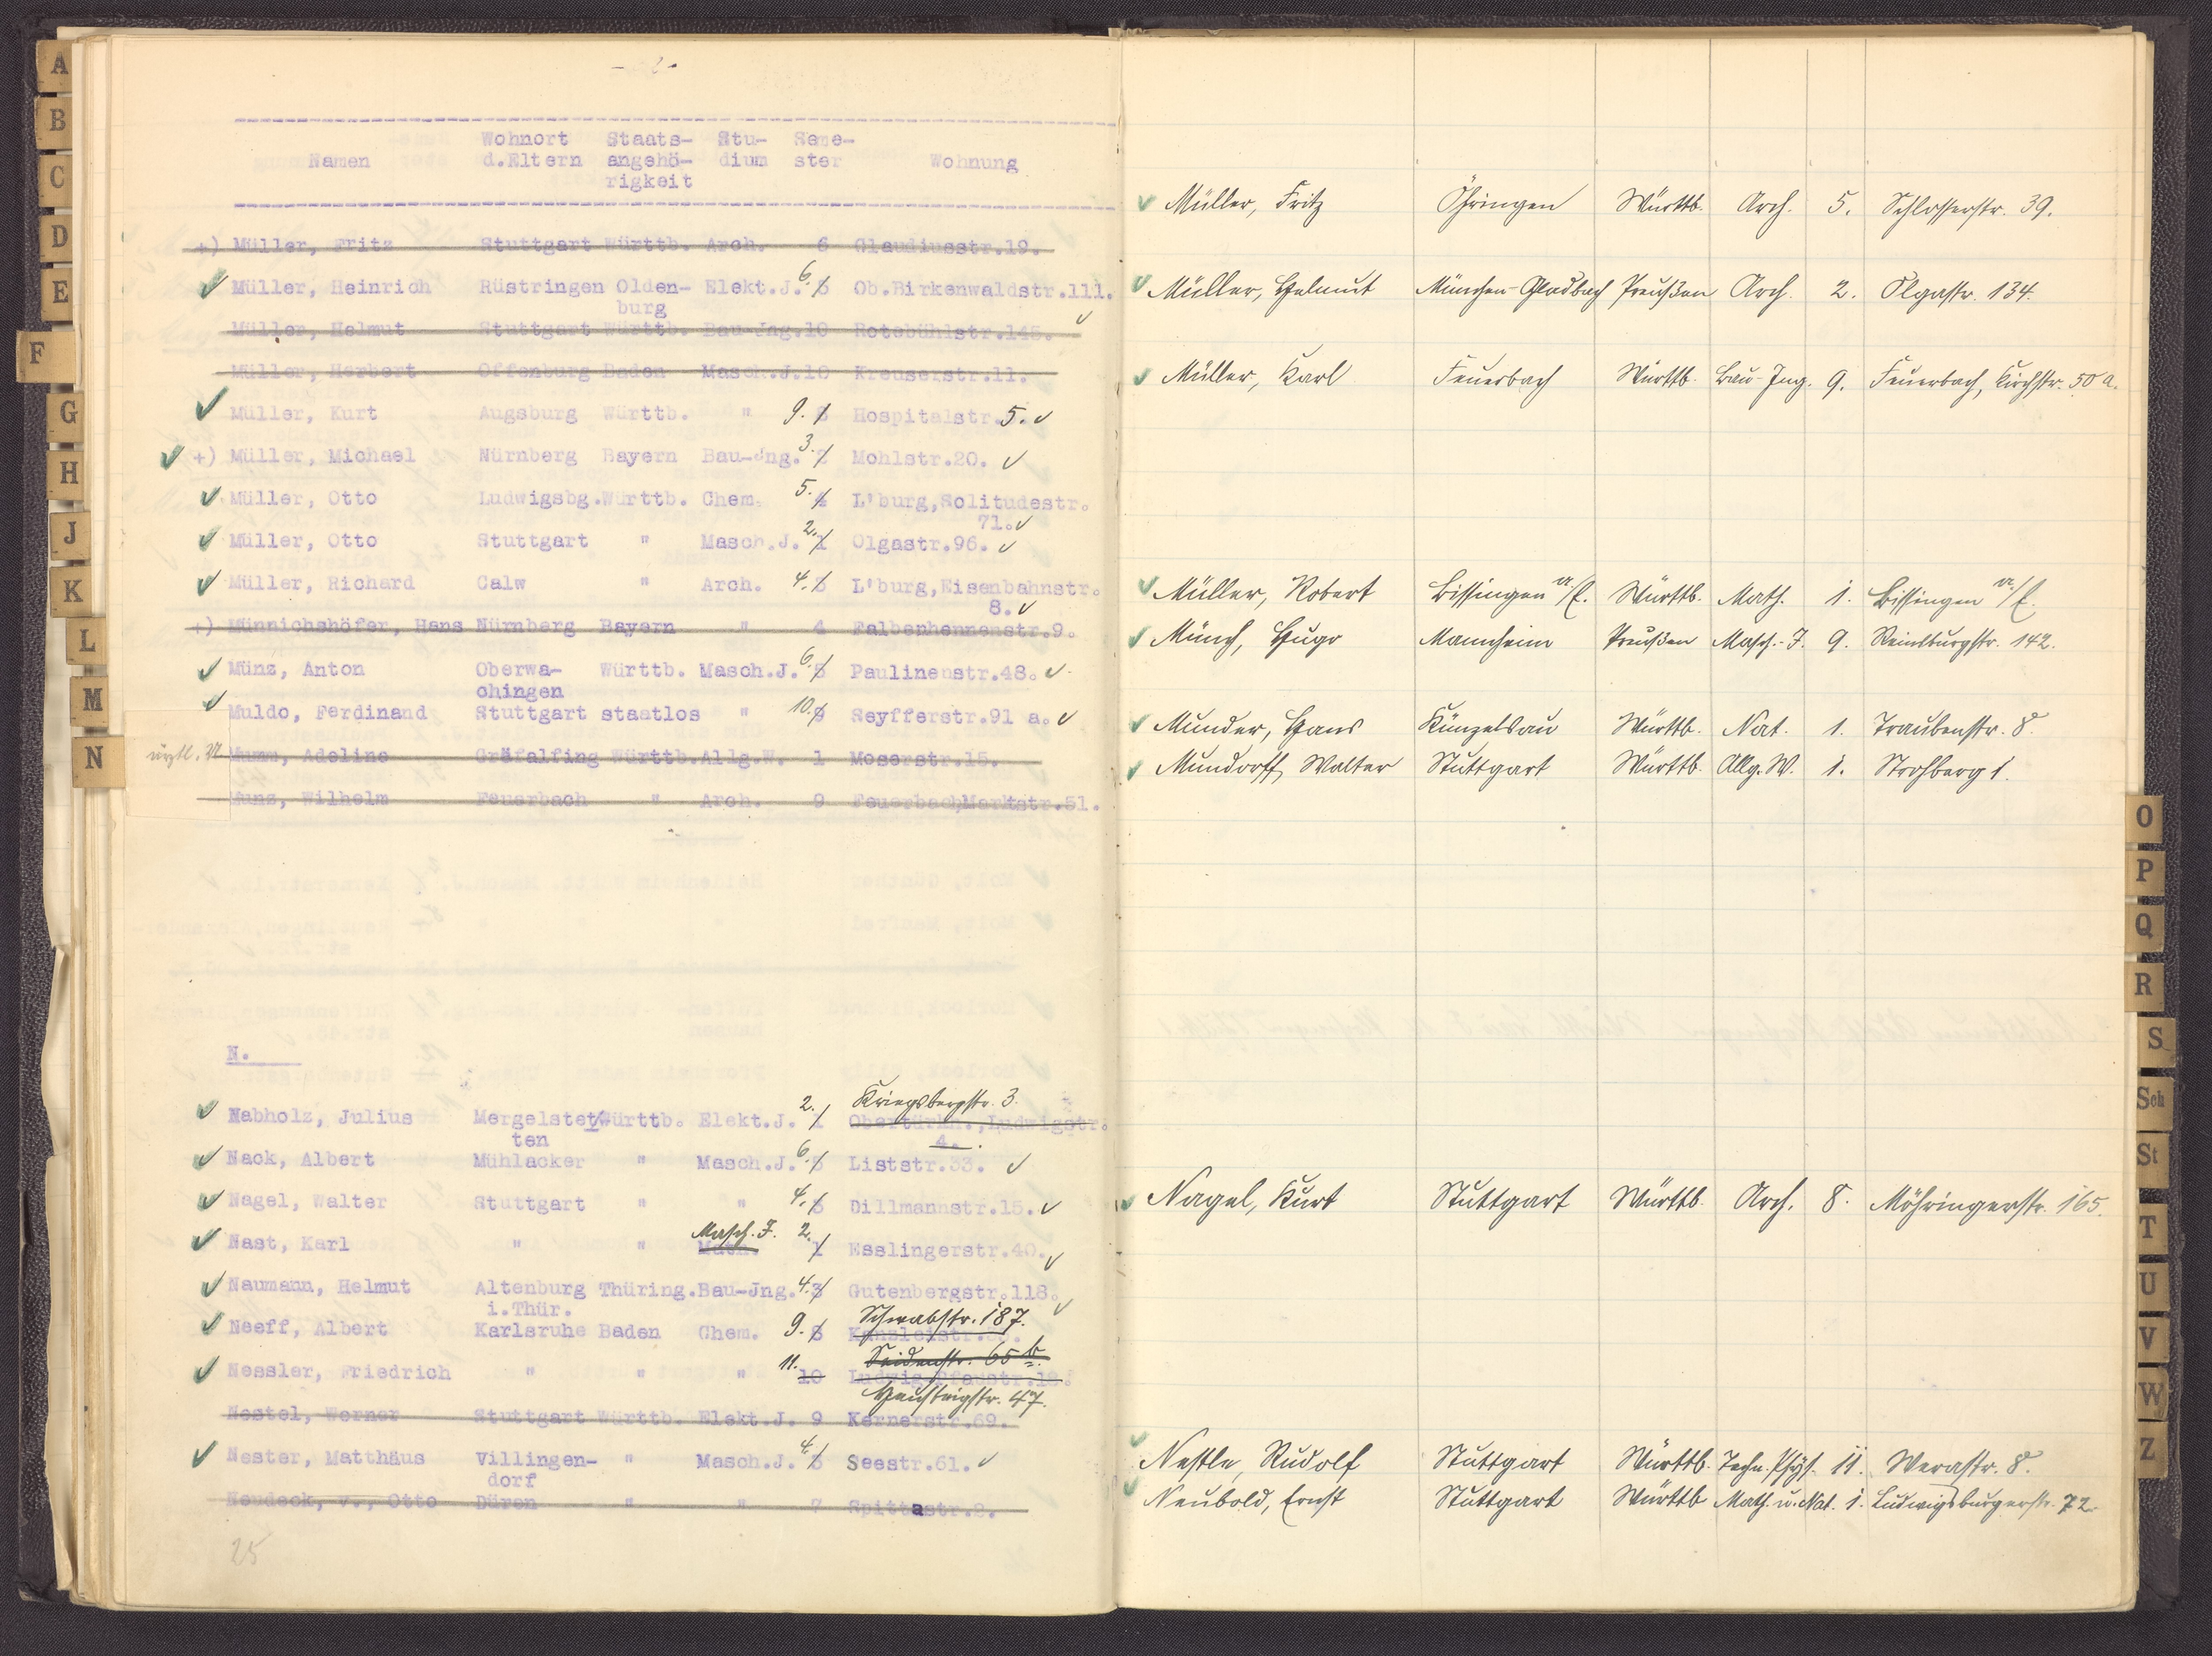 A
B
C
D
E
F
G
H
J
K
L
M
N
Namen Wohnort d.Eltern Staats- angehö- rigkeit Stu- dium Seme- ster Wohnung
+) Müller, Fritz Stuttgart Württb. Arch. 6 Claudiusstr.19.
Müller, Heinrich Rüstringen Olden- Elekt.J. 6. 5 Ob.Birkenwaldstr.111.
burg
Müller, Helmut Stuttgart Württb. Bau-Jng.10 Rotebühlstr.145.
Müller, Herbert Offenburg Baden Masch.J.10 Kreuserstr.11.
Müller, Kurt Augsburg Württb. " 9. 8 Hospitalstr. 5.
+) Müller, Michael Nürnberg Bayern Bau-Jng. 3. 2 Mohlstr.20.
Müller, Otto Ludwigsbg.Württb. Chem. 5. 4 L'burg,Solitudestr.
71.
Müller, Otto Stuttgart " Masch.J. 2. 1 Olgastr.96.
Müller, Richard Calw " Arch. 4. 3 L'burg,Eisenbahnstr.
8.
+) Münnichshöfer, Hans Nürnberg Bayern " 4 Falbenhennenstr.9.
Münz, Anton Oberwa- Württb. Masch.J. 6. 5 Paulinenstr.48.
chingen
Muldo, Ferdinand Stuttgart staatlos " 10. 9 Seyfferstr.91 a.
Mumm, Adeline Gräfalfing Württb.Allg.W. 1 Moserstr.15.
Munz, Wilhelm Feuerbach " Arch. 9 Feuerbach,Marktstr.51.
N.
Kriegsbergstr. 3.
Nabholz, Julius Mergelstet- Württb. Elekt.J. 2. 1 Obertürkh.,Ludwigstr.
ten 4.
Nack, Albert Mühlacker " Masch.J. 6. 5 Liststr.33.
Nagel, Walter Stuttgart " " 4. 3 Dillmannstr.15.
Masch. J. 2.
Nast, Karl " " Math. 1 Esslingerstr.40.
Naumann, Helmut Altenburg Thüring.Bau-Jng. 4. 3 Gutenbergstr.118.
i.Thür. Schwabstr. 187.
Neeff, Albert Karlsruhe Baden Chem. 9. 8
Seidenstr. 65 b.
Nessler, Friedrich " " " 11. 10 Ludwig Pfaustr.12.
Hausteigstr. 47.
Nestel, Werner Stuttgart Württb. Elekt.J. 9 Kernerstr.69.
Nester, Matthäus Villingen- " Masch.J. 4. 3 Seestr.61.
dorf
Neudeck, v., Otto Düren " " 7 Spittastr.2.
25
Müller, Fritz Öhringen Württb. Arch. 5. Schlosserstr. 39.
Müller, Helmut München-Gladbach Preußen Arch. 2. Olgastr. 134.
Müller, Karl Feuerbach Württb. Bau-Ing. 9. Feuerbach, Kirchstr. 50 a.
Müller, Robert Bissingen a/E. Württb. Math. 1. Bissingen a/E.
Münch, Hugo Mannheim Preußen Masch.-J. 9. Reinsburgstr. 142.
Munder, Hans Künzelsau Württb. Nat. 1. Traubenstr. 8.
Mundorff, Walter Stuttgart Württb. Allg. W. 1. Strohberg 1.
Nagel, Kurt Stuttgart Württb. Arch. 8. Möhringerstr. 165.
Nestle, Rudolf Stuttgart Württb. Techn. Phys. 11. Werastr. 8.
Neubold, Ernst Stuttgart Württb Math. u. Nat. 1. Ludwigsburgerstr. 72.
O
P
Q
R
S
Sch
St
T
U
V
W
Z